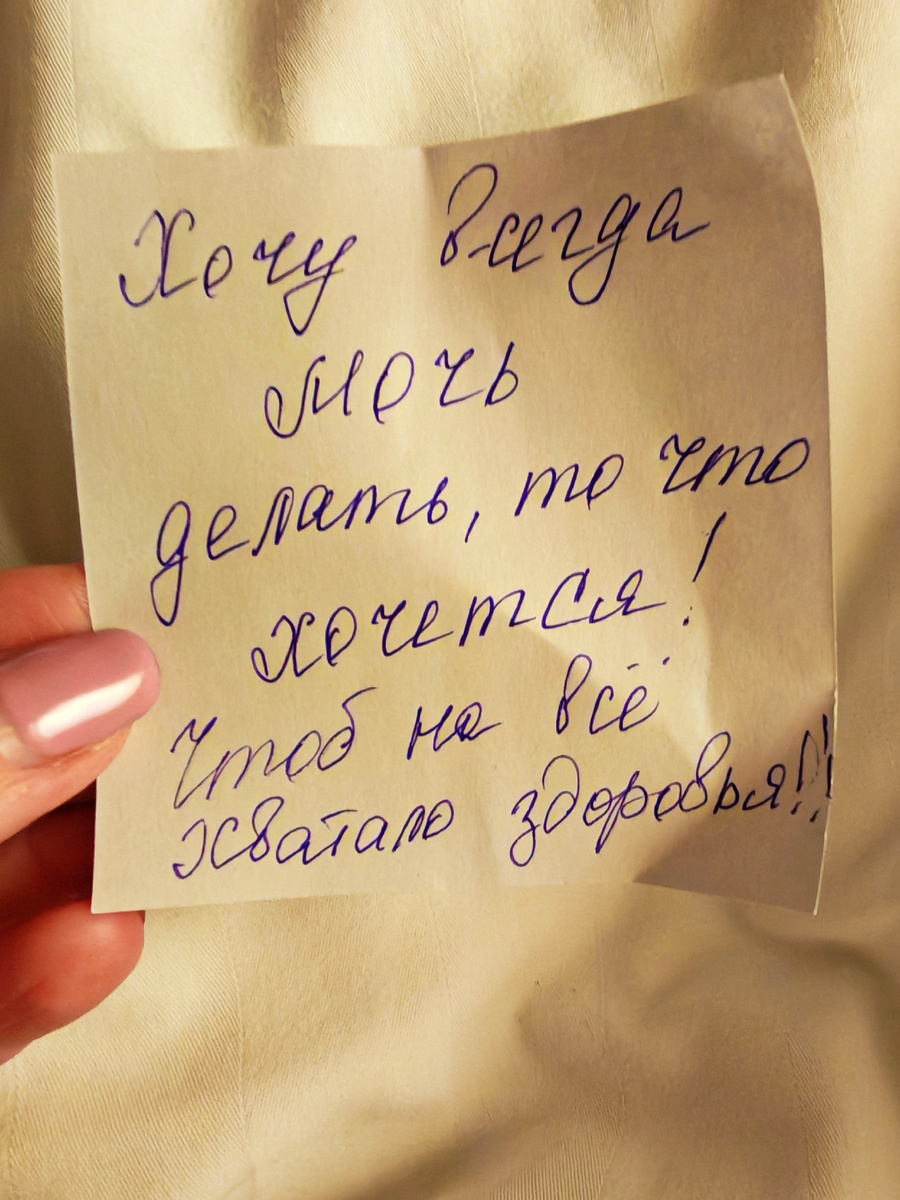 Хочу всегда
мочь
делать, то что
хочется!
Чтоб на всё
хватало здоровья!!